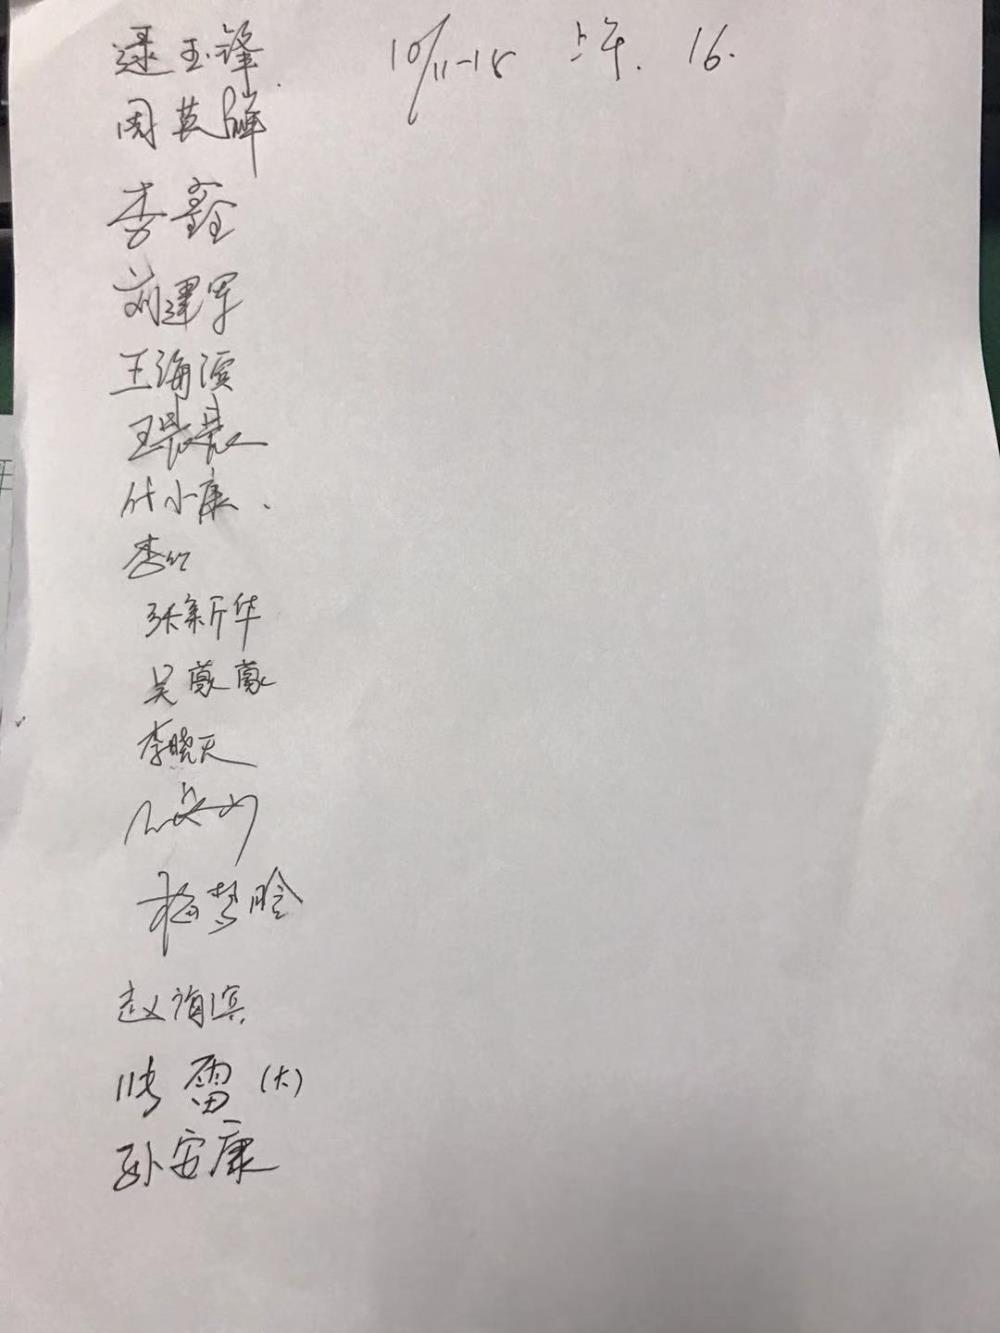 逯玉锋 10/11-18 上午. 16.
周英辉
李鑫
刘建军
王海滨
王晨晨
付小康.
李竹
张新华
吴蒙蒙
李晓天
梅梦晗
赵海滨
师雷(大)
孙安康